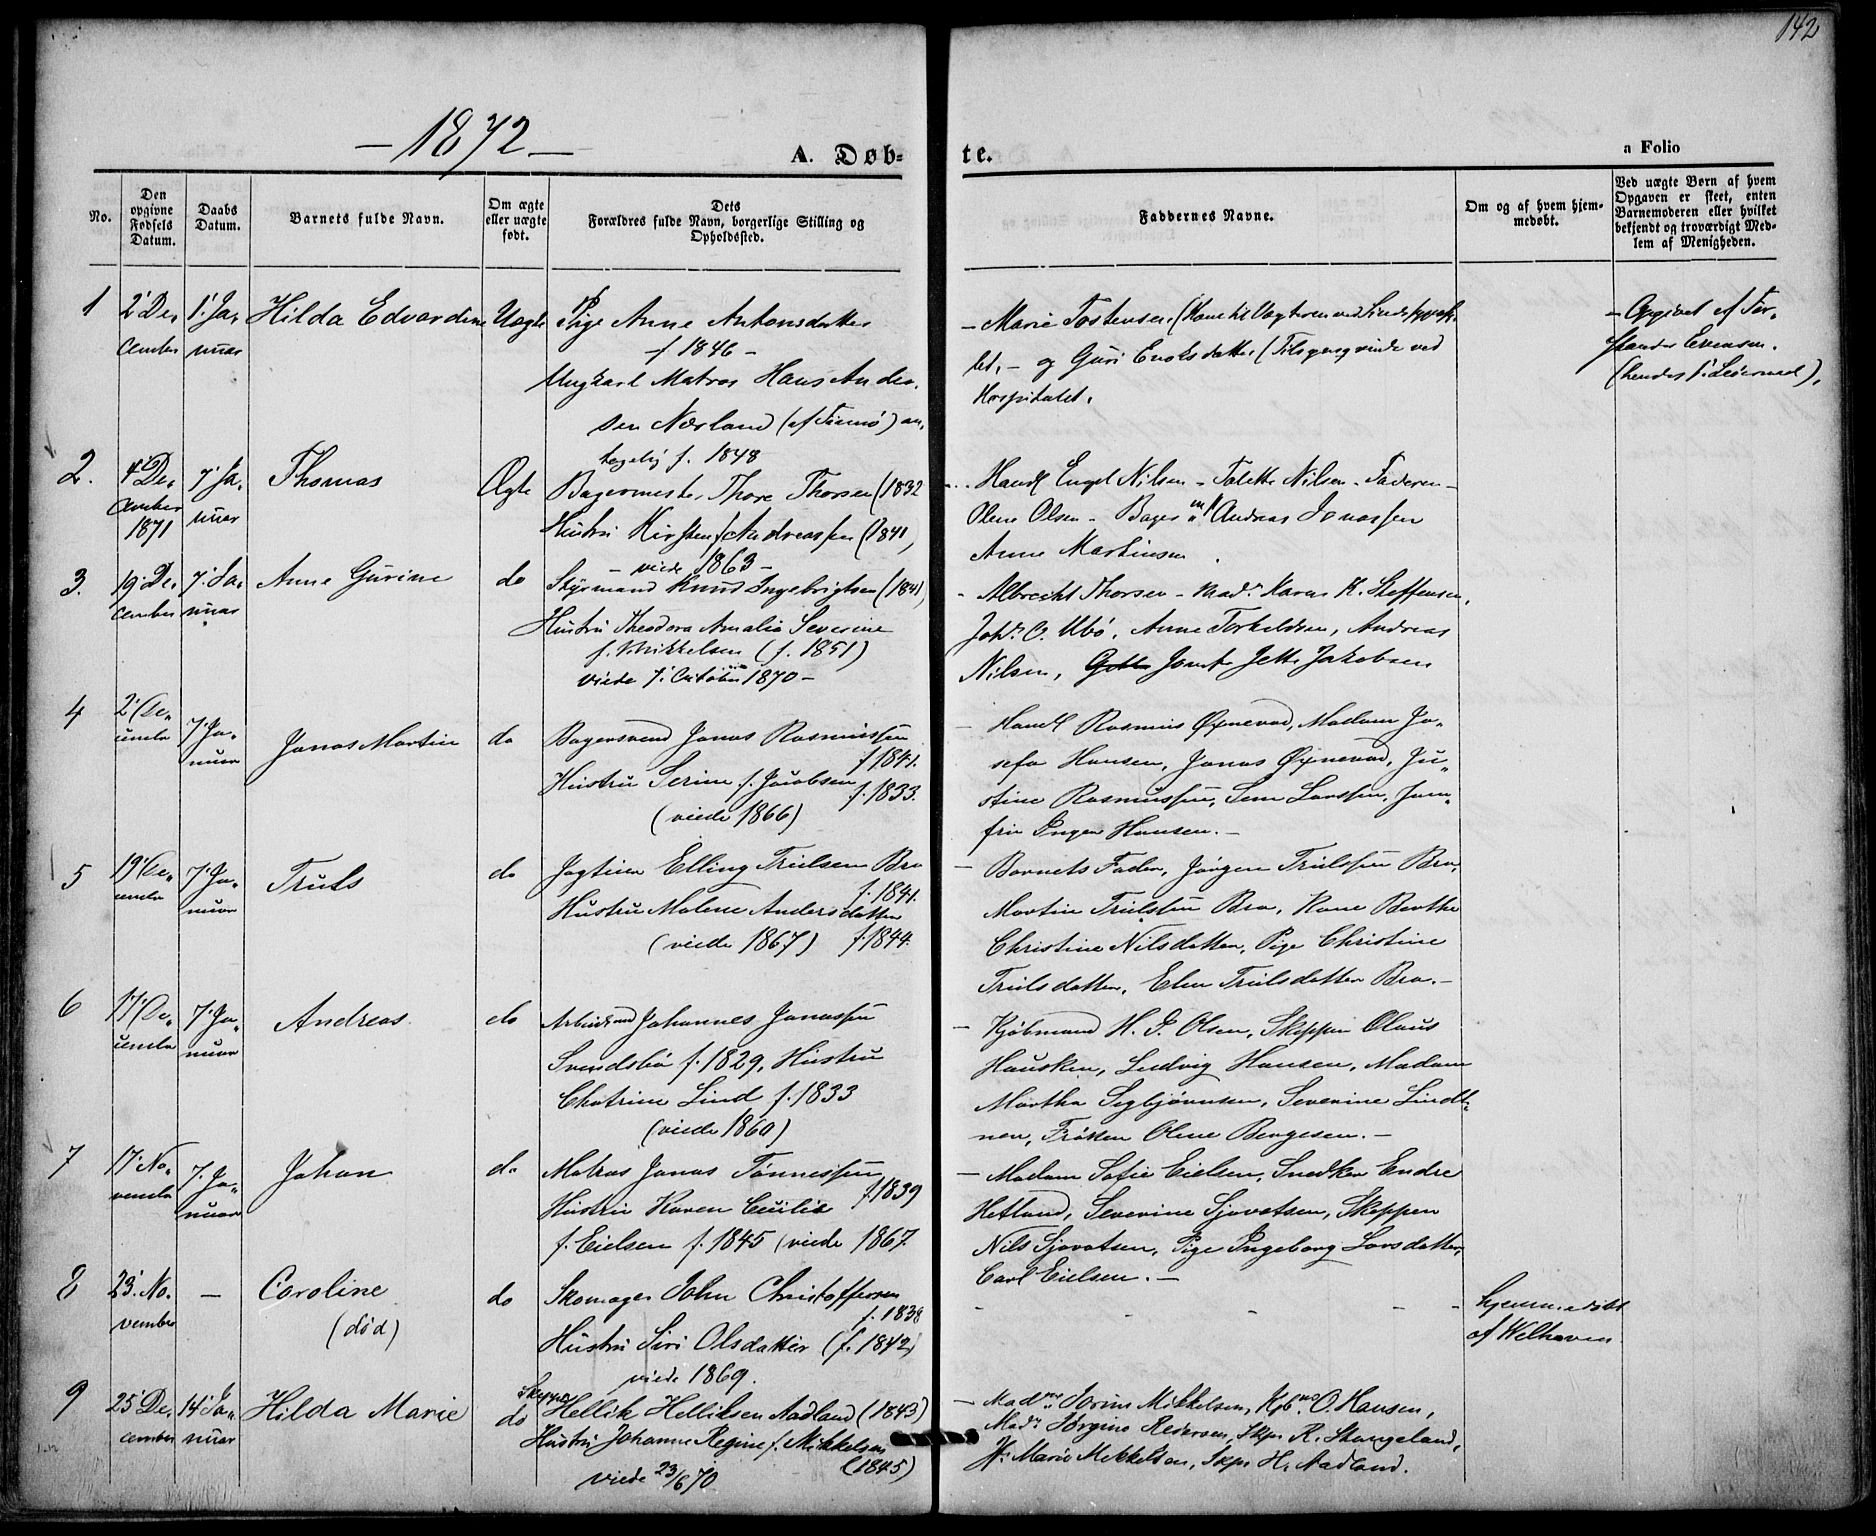 142
- 1872 -
A. Døb-
te.
a Folio
No.
Den opgivne Fødsels Datum.
Daabs Datum.
Barnets fulde Navn.
Om ægte eller uægte født.
Dets Forældres fulde Navn, borgerlige Stilling og Opholdssted.
Faddernes Navne.
Om og af hvem hjemmedøbt.
Ved uægte Børn af hvem Opgaven er skeet, enten Barnemoderen eller hvilket bekjendt og troværdigt Medlem af Menigheden.
1
2' De,
cember
1' Ja,
nuar
Hilda Edvardine
Uægte
Pige Anne Antonsdatter
f 1846 -
Ungkarl Matros Hans Ander,
sen Nærland
f. 1848
- Marie Tostensen,
let, - og Guri Enoksdatter ved
Hospitalet.
- Opgivet af For,
stander Evensen.
2.
4' De,
cember
1871
7' Ja,
nuar
Thomas
Ægte
Bagermester Thore Thorsen (1832
Hustru Kirsten f Andreassen (1841,
- viede 1863 -
Engel Nilsen - Talette Nilsen - Faderen -
Olene Olsen - Andreas Jonassen
Anne Martinsen
3.
19' De,
cember
7' Ja,
nuar
Anne Gurine
do
Styrmand Knud Ingebrigtsen (1841)
Hustru Theodora Amalia Severine
f. Mikkelsen (f. 1851)
viede 7' October 1870 -
- Albrecht Thorsen - Mad. Karen K. Steffensen,
Joh. O. Ubø, Anne Torkeldsen, Andreas
Nilsen, Jomf. Jette Jakobsen
4
2' De,
cembr
7' Ja,
nuar
Jonas Martin
do
Bagersvend Jonas Rasmussen
f 1841.
Hustru Serine f. Jacobsen
f. 1833.
(viede 1866)
- Handl Rasmus Øxnevad, Madam Jo,
sefa Hansen, Jonas Øxnevad, Ju,
stine Rasmussen, Sem Larssen, Jom,
fru Inger Hansen. -
5
19' De,
cembr
7' Ja,
nuar
Truls
do
Jagteier Elling Trulsen Bru
f. 1841.
Hustru Malene Andersdatter
(viede 1867) f. 1844.
- Barnets Fader, Jørgen Trulsen Bru,
Martin Trulsen Bru, Kone Berthe
Christine Nilsdatter, Pige Christine
Trulsdatter, Elen Trulsdatter Bru. -
6
17' De,
cembr
7' Ja,
nuar
Andreas
do
Arbeidsmd Johannes Jonassen
Svendsbø f. 1829, Hustru
Chatrine Lind f. 1833
(viede 1860)
- Kjøbmand H. P. Olsen, Skipper Olaus
Hausken, Ludvig Hansen, Madam
Martha Segbjørnsen, Severine Lindt,
ner, Frøken Oline Bergesen. -
7
17' No,
vembr
7' Ja,
nuar
Johan
do
Matros Jonas Tønnessen
f. 1839
Hustru Karen Cecilie
f. Eielsen f. 1845 (viede 1867
- Madam Sofie Eielsen, Snedker Endre
Hetland, Severine Sjovatsen, Skipper
Nils Sjovatsen, Pige Ingeborg Larsdatter,
Carl Eielsen. -
8
23' No,
vember
-
Caroline
(død)
do
Skomager John Christoffersen
f. 1838
Hustru Siri Olsdatter (f. 1842)
viede 1869.
- - - - -
hjemmedøbt
af Welhaven
9
25' De,
cember
14' Ja,
nuar
Hilda Marie
do
Skipper
Hellik Helliksen Aadland (1843)
Hustru Johanne Regine f. Mikkelsen
(1845)
viede 23/6 70
- Mad. Serine Mikkelsen, Kjbm. O. Hansen,
Mad. Jørgine Pedersen, Skpr R. Stangeland,
Marie Mikkelsen, Skpr H. Aadland.